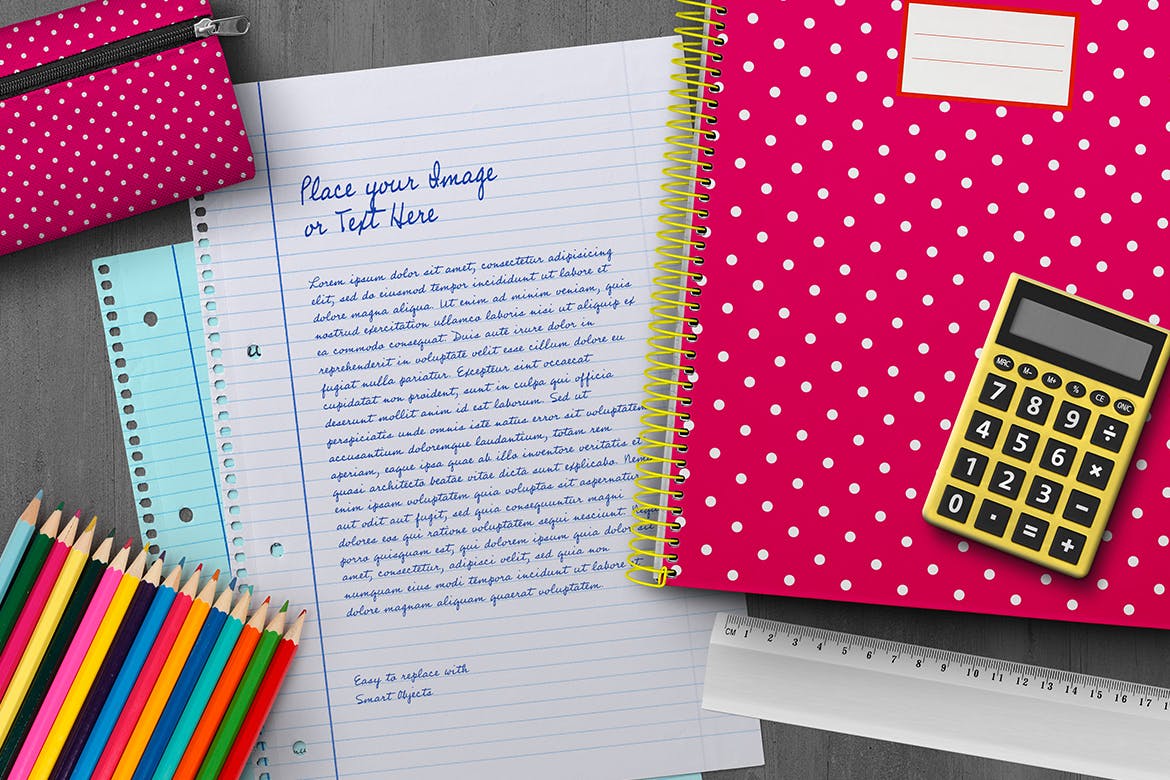 Place your Image
or Text Here
Lorem ipsum dolor sit amet, consectetur adipisicing
elit, sed do eiusmod tempor incididunt ut labore et
dolore magna aliqua. Ut enim ad minim veniam, quis
nostrud exercitation ullamco laboris nisi ut aliquip ex
ea commodo consequat. Duis aute irure dolor in
reprehenderit in voluptate velit esse cillum dolore eu
fugiat nulla pariatur. Excepteur sint occaecat
cupidatat non proident, sunt in culpa qui officia
deserunt mollit anim id est laborum. Sed ut
perspiciatis unde omnis iste natus error sit voluptatem
accusantium doloremque laudantium, totam rem
aperiam, eaque ipsa quae ab illo inventore veritatis et
quasi architecto beatae vitae dicta sunt explicabo. Nemo
enim ipsam voluptatem quia voluptas sit aspernatur
aut odit aut fugit, sed quia consequuntur magni
dolores eos qui ratione voluptatem sequi nesciunt. Neque
porro quisquam est, qui dolorem ipsum quia dolor sit
amet, consectetur, adipisci velit, sed quia non
numquam eius modi tempora incidunt ut labore et
dolore magnam aliquam quaerat voluptatem.
Easy to replace with
Smart Objects
MRC M- M+ % CE ON/C
7 8 9 ÷
4 5 6 ×
1 2 3 −
0 . = +
CM 1 2 3 4 5 6 7 8 9 10 11 12 13 14 15 16 17